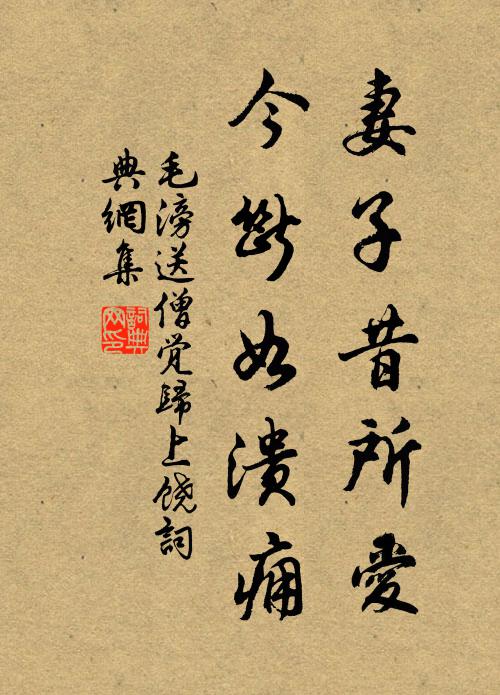 妻子昔所愛
今斷如潰痈
毛滂送僧觉歸上饒詞
典網集
詞典
网印